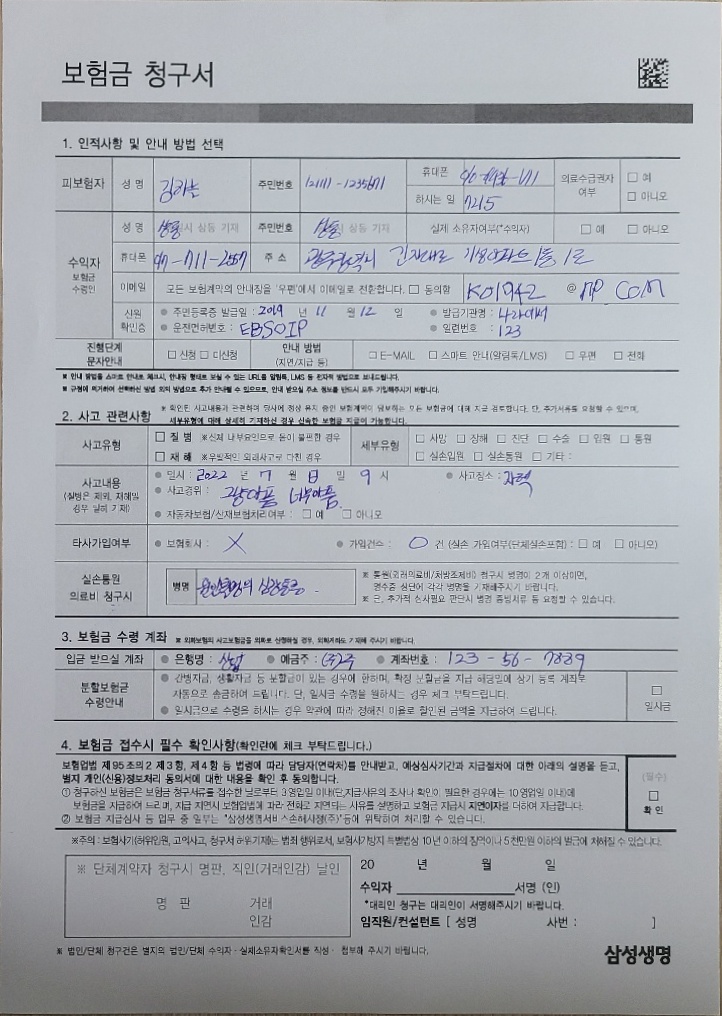 보험금 청구서
1. 인적사항 및 안내 방법 선택
피보험자 성 명 주민번호 121111-1235671 휴대폰 의료수급권자 여부 □ 예 □ 아니오
하시는 일 7215
수익자 보험금 수령인 성 명 상동 시 상동 기재 주민번호 상동 시 상동 기재 실제 소유자여부(*수익자) □ 예 □ 아니오
휴대폰 주 소 광주광역시
이메일 모든 보험계약의 안내장을 '우편'에서 이메일로 전환합니다. □ 동의함 K01942 @ .COM
신원확인증 ● 주민등록증 발급일 : 2019 년 11 월 12 일 ● 발급기관명 :
● 운전면허번호 : EBSOIP ● 일련번호 : 123
진행단계 문자안내 □ 신청 □ 미신청 안내 방법 (지연/지급 등) □ E-MAIL □ 스마트 안내(알림톡/LMS) □ 우편 □ 전화
※ 안내 방법을 스마트 안내로 체크시, 안내장 형태로 보실 수 있는 URL을 알림톡, LMS 등 전자적 방법으로 보내드립니다.
※ 규정에 의거하여 선택하신 방법 외의 방법으로 추가 안내될 수 있으므로, 안내 받으실 주소 정보를 반드시 모두 기입해주시기 바랍니다.
2. 사고 관련사항 ※ 확인된 사고내용과 관련하여 당사에 정상 유지 중인 보험계약이 담보하는 모든 보험금에 대해 지급 검토합니다. 단, 추가서류를 요청할 수 있으며,
세부유형에 대해 상세히 기재하신 경우 신속한 보험금 지급이 가능합니다.
사고유형 □ 질 병 ※신체 내부요인으로 몸이 불편한 경우 세부유형 □ 사망 □ 장해 □ 진단 □ 수술 □ 입원 □ 통원
□ 재 해 ※우발적인 외래사고로 다친 경우 □ 실손입원 □ 실손통원 □ 기타 :
사고내용 (질병은 제외, 재해일 경우 날짜 기재) ● 일시 : 2022 년 7 월 일 9 시 ● 사고장소 : 자택
● 사고경위 : 너무아픔
● 자동차보험/산재보험처리여부 : □ 예 □ 아니오
타사가입여부 ● 보험회사 : X ● 가입건수 : 0 건 (실손 가입여부(단체실손포함) : □ 예 □ 아니오)
실손통원 의료비 청구시 병명 ※ 통원(외래의료비/처방조제비) 청구시 병명이 2개 이상이면,
영수증 상단에 각각 병명을 기재해주시기 바랍니다.
※ 단, 추가적 심사필요 판단시 병명 증빙서류 등 요청할 수 있습니다.
3. 보험금 수령 계좌 ※ 외화보험의 사고보험금을 외화로 신청하실 경우, 외화계좌도 기재해 주시기 바랍니다.
입금 받으실 계좌 ● 은행명 : 산업 ● 예금주 : ● 계좌번호 : 123 - 56 - 7889
분할보험금 수령안내 ● 간병자금, 생활자금 등 분할금이 있는 경우에 한하며, 확정 분할금을 지급 해당일에 상기 등록 계좌로
자동으로 송금하여 드립니다. 단, 일시금 수령을 원하시는 경우 체크 부탁드립니다.
● 일시금으로 수령을 하시는 경우 약관에 따라 정해진 이율로 할인된 금액을 지급하여 드립니다.
□ 일시금
4. 보험금 접수시 필수 확인사항(확인란에 체크 부탁드립니다.)
보험업법 제95조의2 제3항, 제4항 등 법령에 따라 담당자(연락처)를 안내받고, 예상심사기간과 지급절차에 대한 아래의 설명을 듣고,
별지 개인(신용)정보처리 동의서에 대한 내용을 확인 후 동의합니다.
① 청구하신 보험금은 보험금 청구서류를 접수한 날로부터 3영업일 이내(단,지급사유의 조사나 확인이 필요한 경우에는 10영업일 이내)에
보험금을 지급하여 드리며, 지급 지연시 보험업법에 따라 전화로 지연되는 사유를 설명하고 보험금 지급시 지연이자를 더하여 지급합니다.
② 보험금 지급심사 등 업무 중 일부는 "삼성생명서비스손해사정(주)"등에 위탁하여 처리할 수 있습니다.
(필수) □ 확 인
※주의 : 보험사기(허위입원, 고의사고, 청구서 허위기재)는 범죄 행위로서, 보험사기방지 특별법상 10년 이하의 징역이나 5천만원 이하의 벌금에 처해질 수 있습니다.
※ 단체계약자 청구시 명판, 직인(거래인감) 날인
명 판 거래 인감
20 년 월 일
수익자 서명 (인)
*대리인 청구는 대리인이 서명해주시기 바랍니다.
임직원/컨설턴트 [ 성명 사번 : ]
※ 법인/단체 청구건은 별지의 법인/단체 수익자 · 실제소유자확인서를 작성 · 첨부해 주시기 바랍니다.
삼성생명